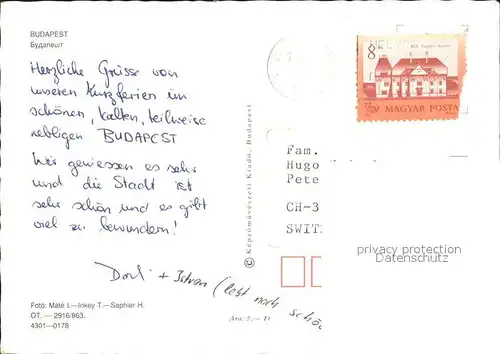 BUDAPEST
Будапешт
Herzliche Grüsse von
unseren Kurzferien im
schönen, kalten, teilweise
nebligen BUDAPEST
Wir geniessen es sehr
und die Stadt ist
sehr schön und es gibt
viel zu bewundern!
Dorli + Istvan (lebt noch schön
Fotó: Máté I.—Inkey T.—Saphier H.
OT. — 2916/863.
4301—0178
© Képzőművészeti Kiadó, Budapest
Ára: 5,— Ft
8 Ft
MAGYAR POSTA
Fam.
Hugo
Pete
CH-3
SWIT
privacy protection
Datenschutz